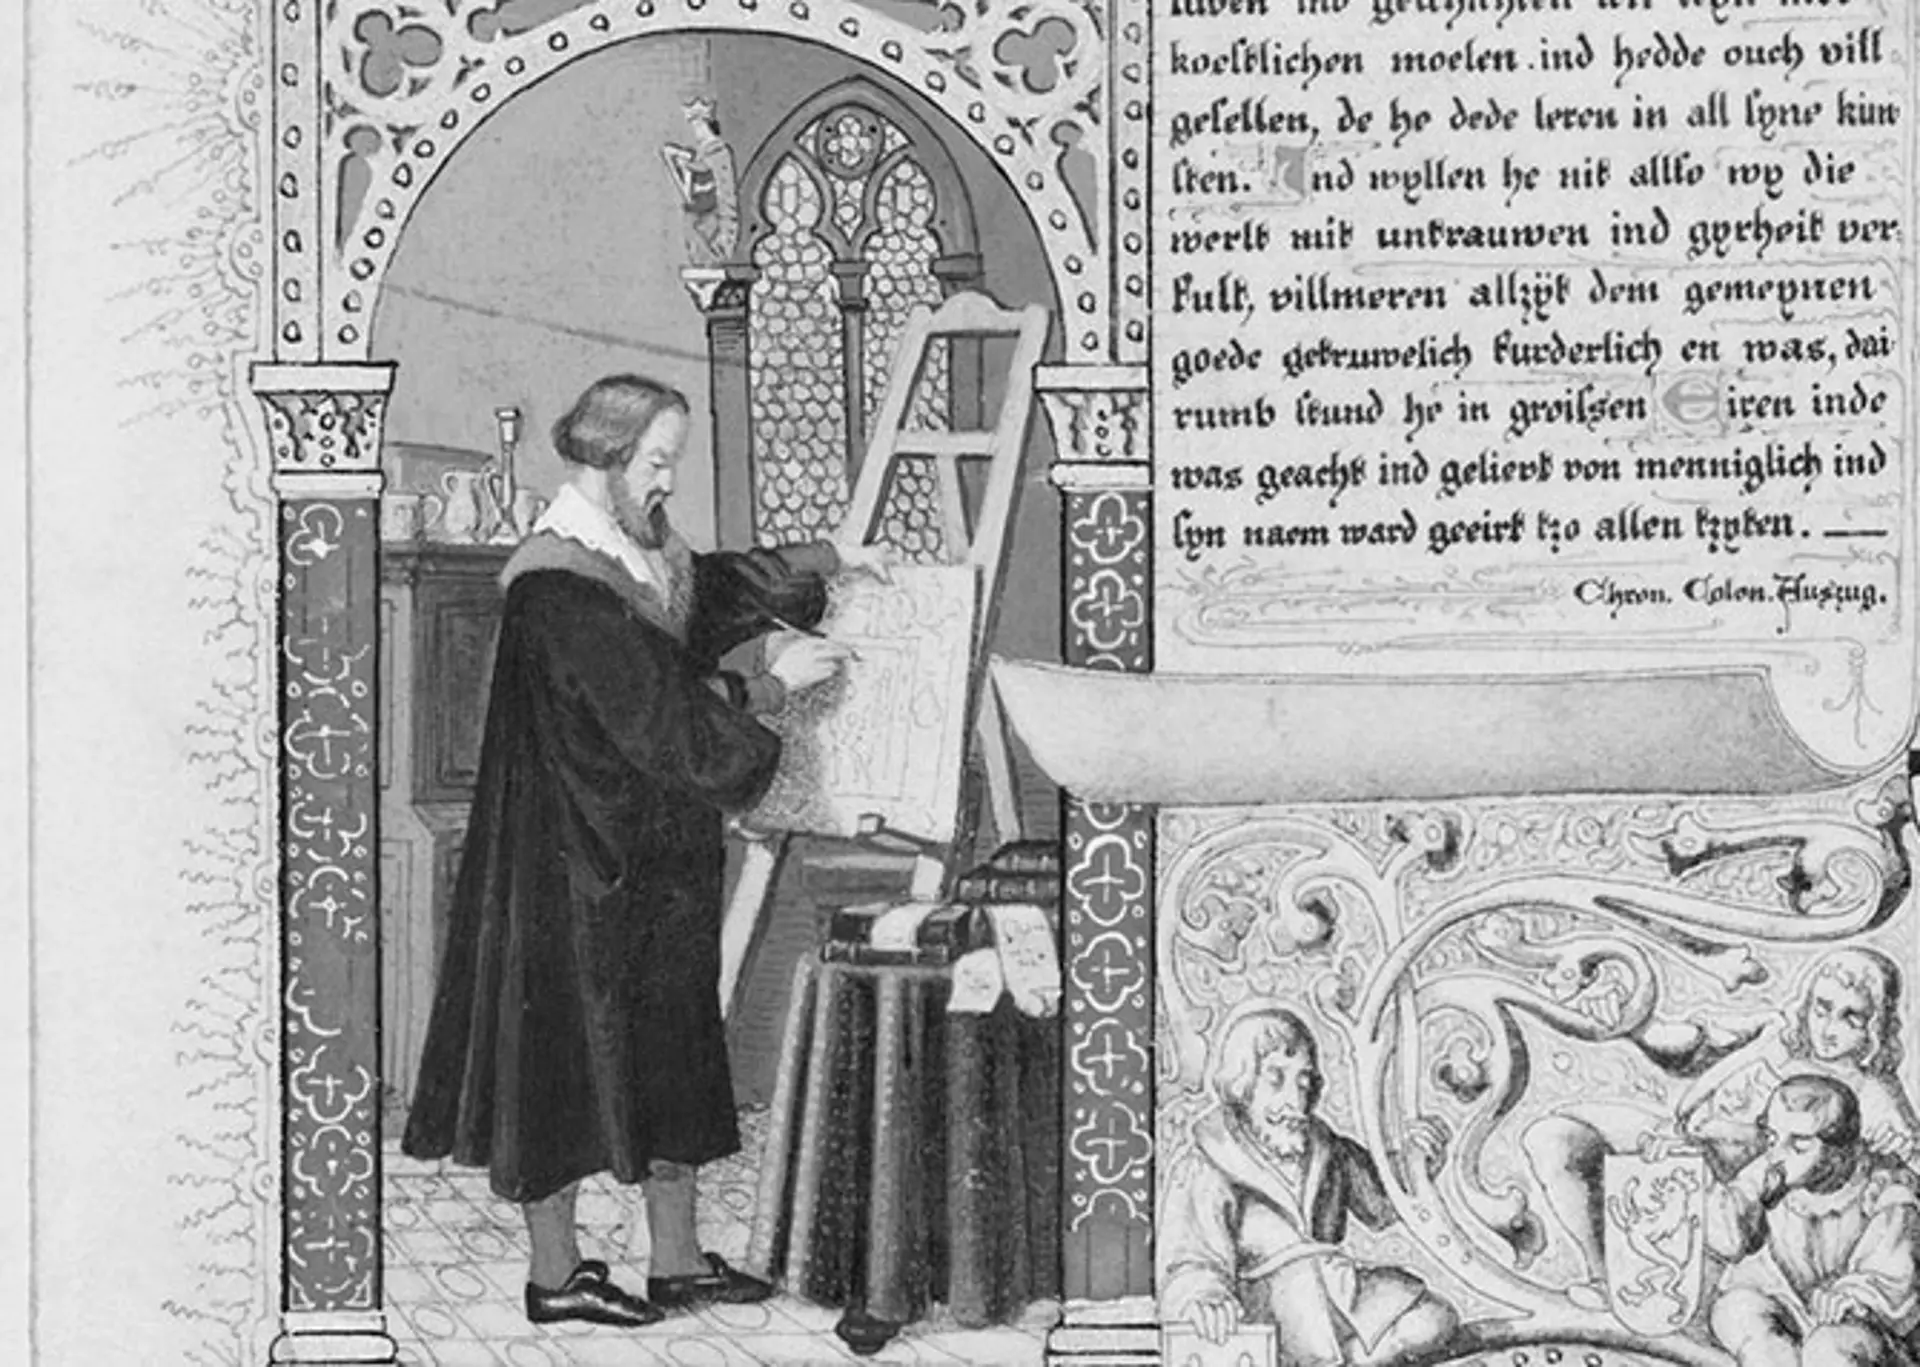 koestlichen moelen . ind hedde ouch vill
gesellen, de he dede leren in all syne kün
sten. Ind wyllen he nit allso wy die
werlt mit untrauwen ind gyrheit ver
fult, villmeren allzÿt dem gemeynen
goede getruwelich furderlich en was, dai
rumb stund he in groissen Eiren inde
was geacht ind gelievt von menniglich ind
syn naem ward geeirt tzo allen tzyten. —
Chron. Colon. Auszug.